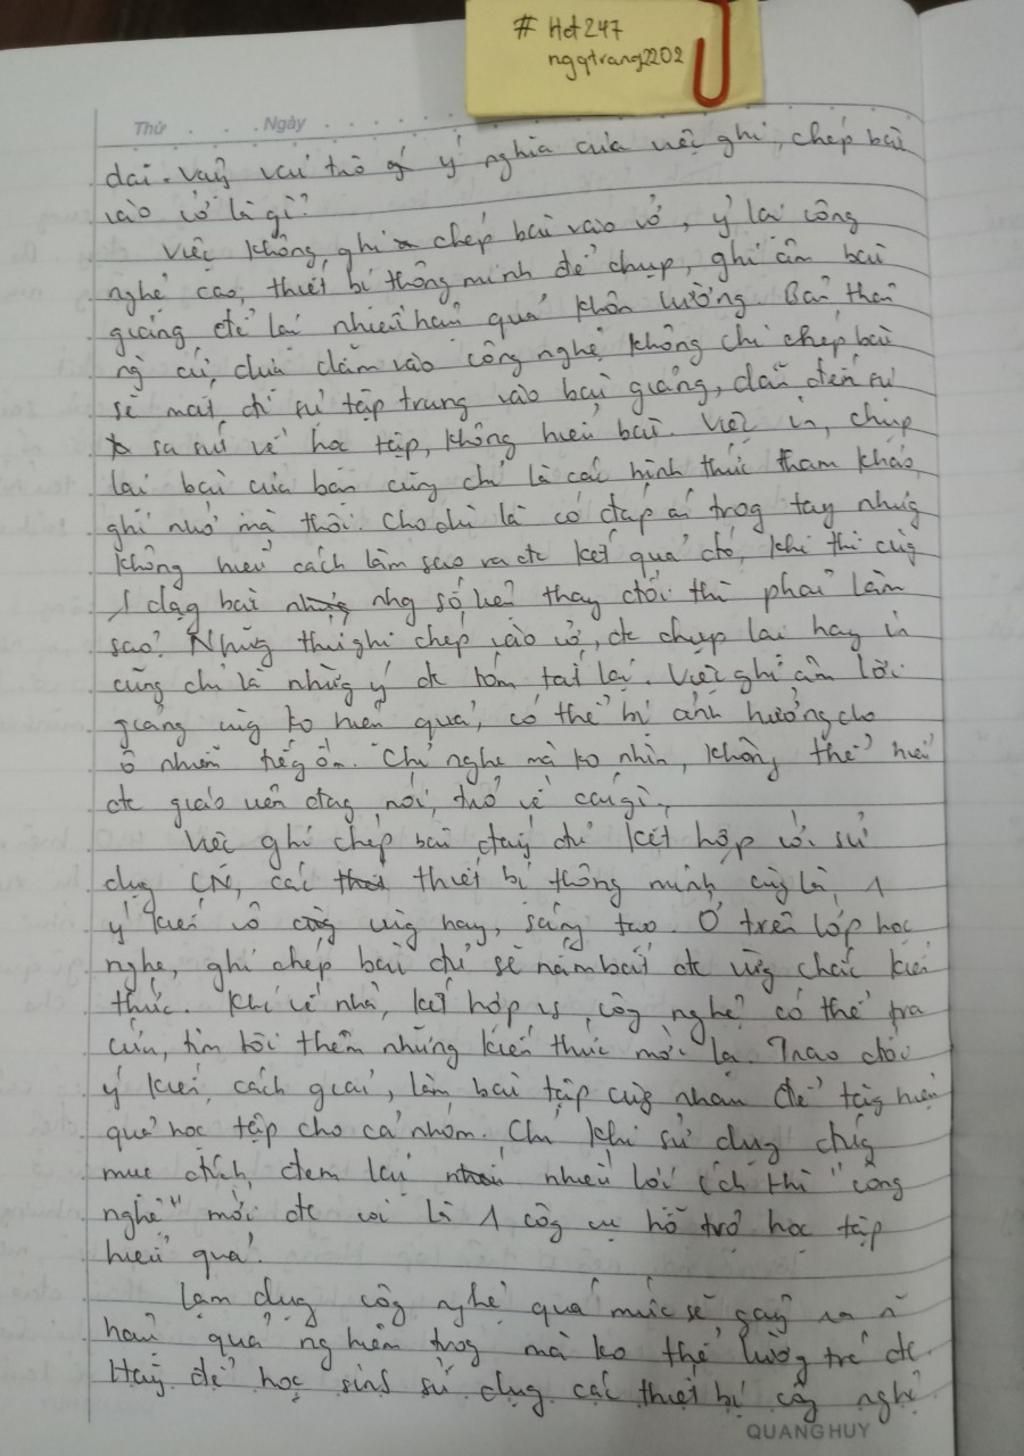 # Hot247
ngqtrang2202
Thứ . . . . Ngày . . . . . . . .
dài. Vậy vai trò ý nghĩa của việc ghi, chép bài
vào vở là gì?
Việc không ghi chép bài vào vở, ỷ lại công
nghệ cao, thiết bị thông minh để chụp, ghi âm bài
giảng để lại nhiều hậu quả khôn lường. Bản thân
ng cứ dựa dẫm vào công nghệ không chỉ chép bài
sẽ mất đi sự tập trung vào bài giảng, dẫn đến sự
sa sút về học tập, không hiểu bài. Việc in, chụp
lại bài của bạn cũng chỉ là các hình thức tham khảo,
ghi nhớ mà thôi. Cho dù là có đáp án trog tay nhưg
không hiểu cách làm sao ra đc kết quả đó, khi thi cũg
1 dạg bài nhưg số liệu thay đổi thì phải làm
sao? Nhữg thứ ghi chép vào vở, đc chụp lại hay in
cũng chỉ là nhữg ý đc tóm tắt lại. Việc ghi âm lời
giảng cũg ko hiệu quả, có thể bị ảnh hưởng cho
ô nhiễm tiếg ồn. Chỉ nghe mà ko nhìn, không thể hiểu
đc giáo viên đag nói, trỏ về cái gì.
Việc ghi chép bài đầy đủ kết hợp với sử
dụg CN, các thiết bị thông minh cũg là 1
ý kiến vô cùg hay, sáng tạo. Ở trên lớp học
nghe, ghi chép bài đủ sẽ nắm bắt đc vữg chắc kiến
thức. Khi về nhà, kết hợp vs côg nghệ có thể tra
cứu, tìm tòi thêm những kiến thức mới lạ. Trao đổi
ý kiến, cách giải, làm bài tập cùg nhau để tăg hiệu
quả học tập cho cả nhóm. Chỉ khi sử dụng đúg
mục đích, đem lại nhiều lợi ích thì "công
nghệ" mới đc coi là 1 côg cụ hỗ trợ học tập
hiệu quả.
Lạm dụg côg nghệ quá mức sẽ gây ra
hậu quả nghiêm trog mà ko thể lườg trc đc.
Hãy để học sinh sử dụg các thiết bị côg nghệ
QUANG HUY